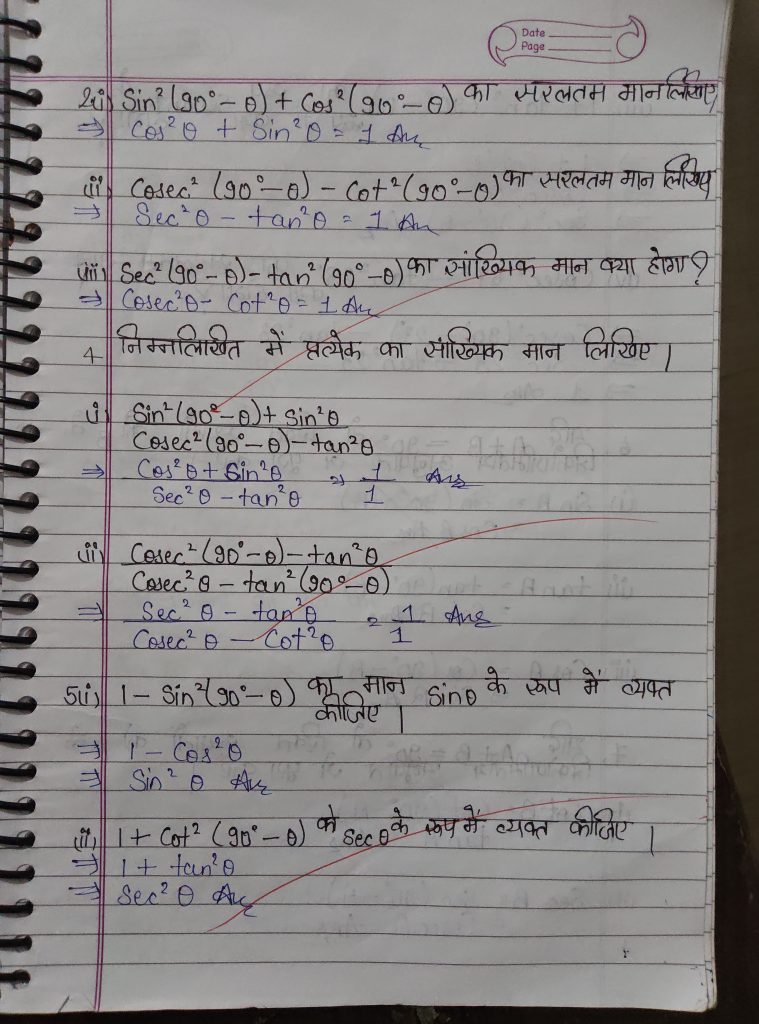 Date
Page
2(i) Sin²(90°-θ) + Cos²(90°-θ) का सरलतम मान लिखिए
⇒ Cos²θ + Sin²θ = 1 Ans
(ii) Cosec² (90°-θ) - Cot²(90°-θ) का सरलतम मान लिखिए
⇒ Sec²θ - tan²θ = 1 Ans
(iii) Sec²(90°-θ) - tan²(90°-θ) का सांख्यिक मान क्या होगा ?
⇒ Cosec²θ - Cot²θ = 1 Ans
4 निम्नलिखित में प्रत्येक का सांख्यिक मान लिखिए |
i) Sin²(90°-θ) + Sin²θ
Cosec²(90°-θ) - tan²θ
⇒ Cos²θ + Sin²θ ⇒ 1 Ans
Sec²θ - tan²θ 1
(ii) Cosec²(90°-θ) - tan²θ
Cosec²θ - tan²(90°-θ)
⇒ Sec²θ - tan²θ = 1 Ans
Cosec²θ - Cot²θ 1
5(i) 1 - Sin²(90°-θ) का मान Sinθ के रूप में व्यक्त
कीजिए |
⇒ 1 - Cos²θ
⇒ Sin²θ Ans
(ii) 1 + Cot² (90°-θ) को Secθ के रूप में व्यक्त कीजिए |
⇒ 1 + tan²θ
⇒ Sec²θ Ans